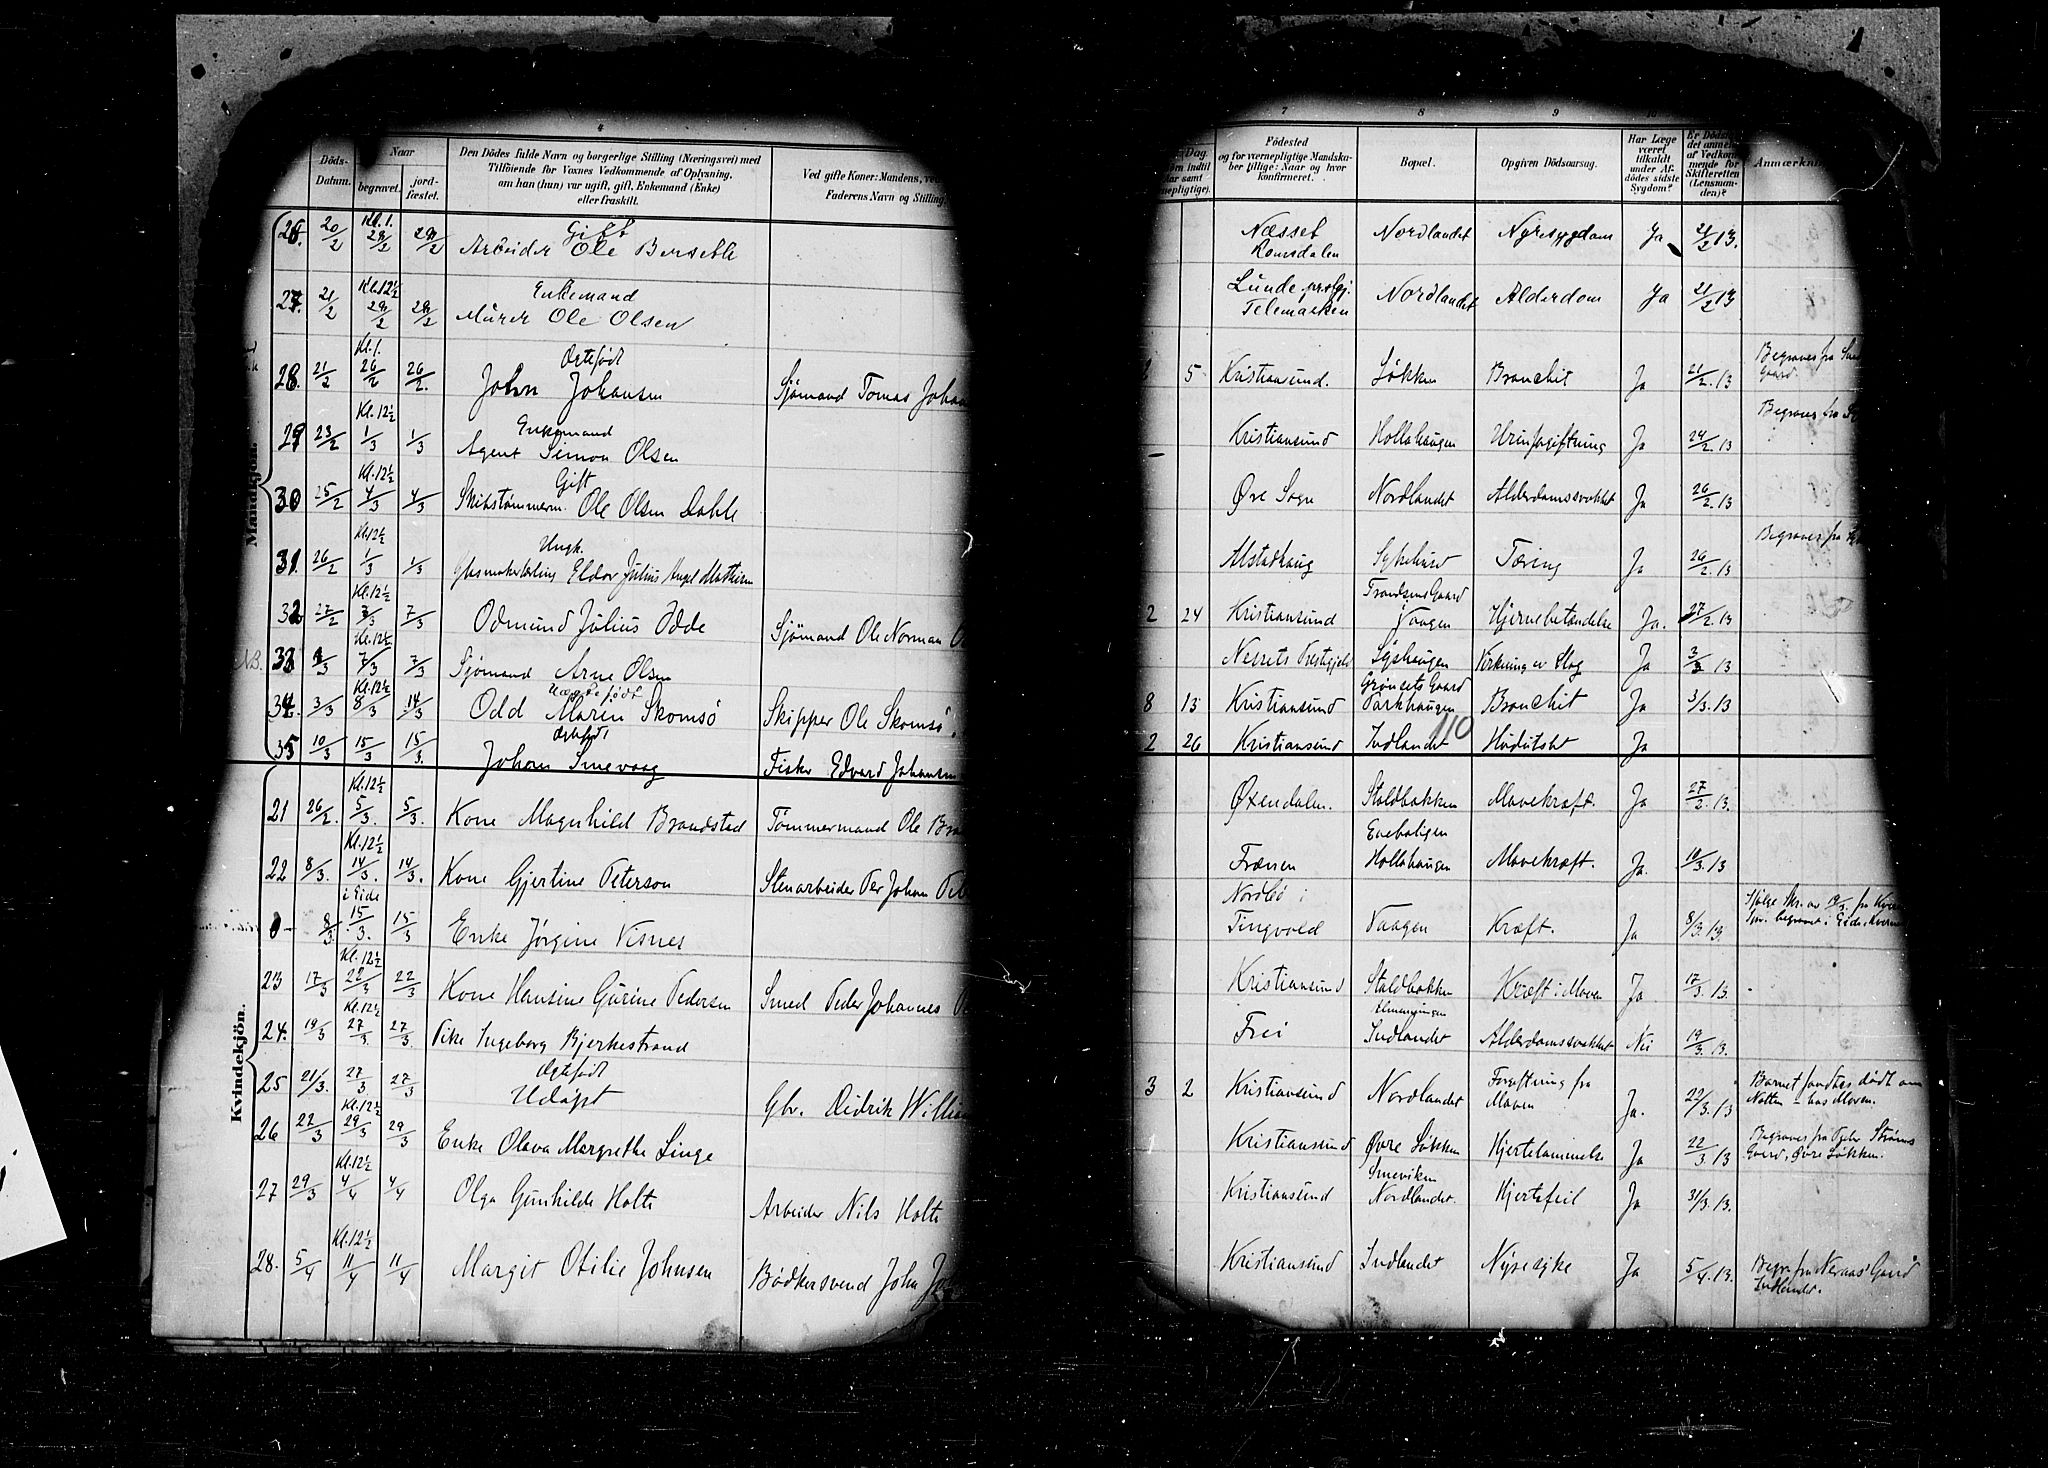 4
Döds-
Datum.
Naar
begravet.
jord-
fæstet.
Den Dödes fulde Navn og borgerlige Stilling (Næringsvei) med
Tilföiende for Voxnes Vedkommende af Oplysning,
om han (hun) var ugift, gift, Enkemand (Enke)
eller fraskilt.
Ved gifte Koner: Mandens, ve
Faderens Navn og Stilling.
Mandkjön.
Kl. 1.
Gift
26. 20/2 28/2 28/2 Arbeider Ole Berseth
Kl. 12½
Enkemand
27. 21/2 28/2 28/2 Murer Ole Olsen
Kl. 1.
Ægtefødt
28. 21/2 26/2 26/2. John Johansen Sjømand Tomas Johan
Kl. 12½
Enkemand
29. 23/2 1/3 1/3 Agent Simon Olsen
Kl. 12½
Gift
30 25/2 4/3 4/3 Skibstømmerm. Ole Olsen Dahle
Kl. 12½
Ungk.
31. 26/2 1/3 1/3 Eldor Julius Angel Mathisen
Kl. 12½
32 27/2 7/3 7/3 Odmund Julius Odde Sjømand Ole Norman O
Kl. 12½
NB. 33 /3 7/3 7/3 Sjømand Arne Olsen
Kl. 12½
Uægtefødt
34. 3/3 8/3 14/3 Odd Marin Skomsö Skipper Ole Skomsö.
Ægtefødt
35 10/3 15/3 15/3. Johan Smevaag Fisker Edvard Johansen
Kvindekjön.
Kl. 12½
21 26/2. 5/3. 5/3. Kone Magnhild Brandstad Tømmermand Ole Bra
Kl. 12½
22 8/3. 14/3. 14/3. Kone Gjertine Peterson Stenarbeider Per Johan Pet
i Eide
0 8/3. 15/3. 15/3 Enke Jørgine Visnes
Kl. 12½
23 17/3 22/3 22/3 Kone Hansine Gurine Pedersen Smed Peder Johannes Pe
Kl. 12½
24. 19/3 27/3. 27/3. Pike Ingeborg Bjerkestrand
Ægtefødt
25 21/3. 27/3 27/3 Udøpt Gbr. Didrik William
Kl. 12½
26 22/3 29/3 29/3 Enke Olava Margrethe Linge
Kl. 12½
27 29/3 4/4 4/4 Olga Gunhilde Holte Arbeider Nils Holte
Kl. 12½
28. 5/4 11/4 11/4 Margit Otilie Johnsen Bödkersvend John Jo
7
8
9
10
Dag
Födested
og for værnepligtige Mandska-
ber tillige: Naar og hvor
konfirmeret.
Bopæl.
Opgiven Dödsaarsag.
Har Læge
været
tilkaldt
under Af-
dödes sidste
Sygdom?
Er Dödsfal-
det anmel
af Vedkom-
mende for
Skifteretten
(Lensman-
den)?
Anmærkn
Næsset Nordlandet Nyresygdom Ja 21/2 13.
Romsdalen
Lunde prstgj. Nordlandet Alderdom Ja 21/2 13
Telemarken
Begraves fra
5 Kristiansund. Løkken Bronchit Ja 21/2. 13 Gaard.
Begraves fra
Kristiansund Hollahaugen Urinforgiftning Ja 24/2. 13
Øre Sogn Nordlandet Alderdomssvakhet Ja 26/2. 13
Begraves fra
Alstadhaug Sykehuset Tæring Ja 26/2. 13
Gaard
2 24 Kristiansund Vaagen Hjernebetændelse Ja. 27/2. 13
Nessets Prestgjeld Sykehaugen Virkning av Slag Ja 3/3 13
Grønsets Gaard
8 13 Kristiansund Parkhaugen Bronchit Ja 3/3. 13
110
2 26 Kristiansund Indlandet Ja
Øxendalen. Staldbakken Mavekræft. Ja 27/2. 13.
Eneboligen
Frænen Hollahaugen Mavekræft. Ja. 10/3. 13
Nordbö i
Tingvold Vaagen Kræft. Ja 8/3. 13. begravet i Eide, Kverne
Kristiansund Staldbakken Kræft i Maven Ja 17/3. 13.
Frei Indlandet Alderdomssvakhet Nei 19/3. 13.
3 2 Kristiansund Nordlandet Ja. 22/3. 13 Barnet fandtes dødt om
Natten – hos Moren.
Kristiansund Øvre Løkken Hjertelammelse Ja 22/3. 13 Begraves fra Strøms
Gaard, Øvre Løkken.
Smeviken
Kristiansund Nordlandet. Hjertefeil Ja 31/3. 13.
Kristiansund Indlandet Nyresyke Ja 5/4. 13. Begr. fra Neraas' Gaard
Indlandet.